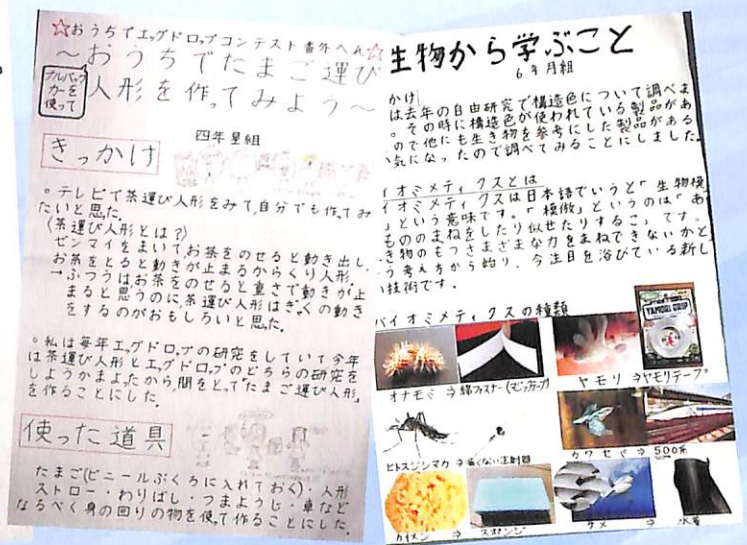 ☆おうちでエッグドロップコンテスト番外へん☆
～おうちでたまご運び
プルバック
カーを
使って
人形を作ってみよう～
四年星組
きっかけ
。テレビで茶運び人形をみて、自分でも作ってみ
たいと思った。
〈茶運び人形とは?〉
ゼンマイをまいて、お茶をのせると動き出し、
お茶をとると動きが止まるからくり人形。
→ふつうはお茶をのせると重さで動きが止
まると思うのに、茶運び人形はぎゃくの動き
をするのがおもしろいと思った。
。私は毎年エッグドロップの研究をしていて今年
は茶運び人形とエッグドロップのどちらの研究を
しようかまよったから、間をとって「たまご運び人形」
を作ることにした。
使った道具
たまご(ビニールぶくろに入れておく)・人形
ストロー・わりばし・つまようじ・車など
なるべく身の回りの物を使って作ることにした。
生物から学ぶこと
6年月組
かけ
は去年の自由研究で構造色について調べま
。その時に構造色が使われている製品があ
ので他にも生き物を参考にした製品がある
気になったので調べてみることにしました。
イオミメティクスとは
イオミメティクスは日本語でいうと「生物模
」という意味です。「模倣」というのは「あ
もののまねをしたり似せたりすること」です。
き物のもつさまざまな力をまねできないかと
う考え方から始り、今注目を浴びている新し
技術です。
バイオミメティクスの種類
YAMORI GRIP
オナモミ ⇒ 綿ファスナー(マジックテープ)
ヤモリ ⇒ヤモリテープ
ヒトスジシマカ ⇒ 痛くない注射器
カワセミ ⇒ 500系
カイメン ⇒ スポンジ
サメ ⇒ 水着